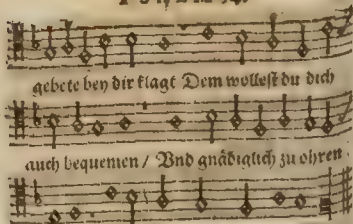 gebete bey dir klagt Dem wollest du dich
auch bequemen / Vnd gnädiglich zu ohren